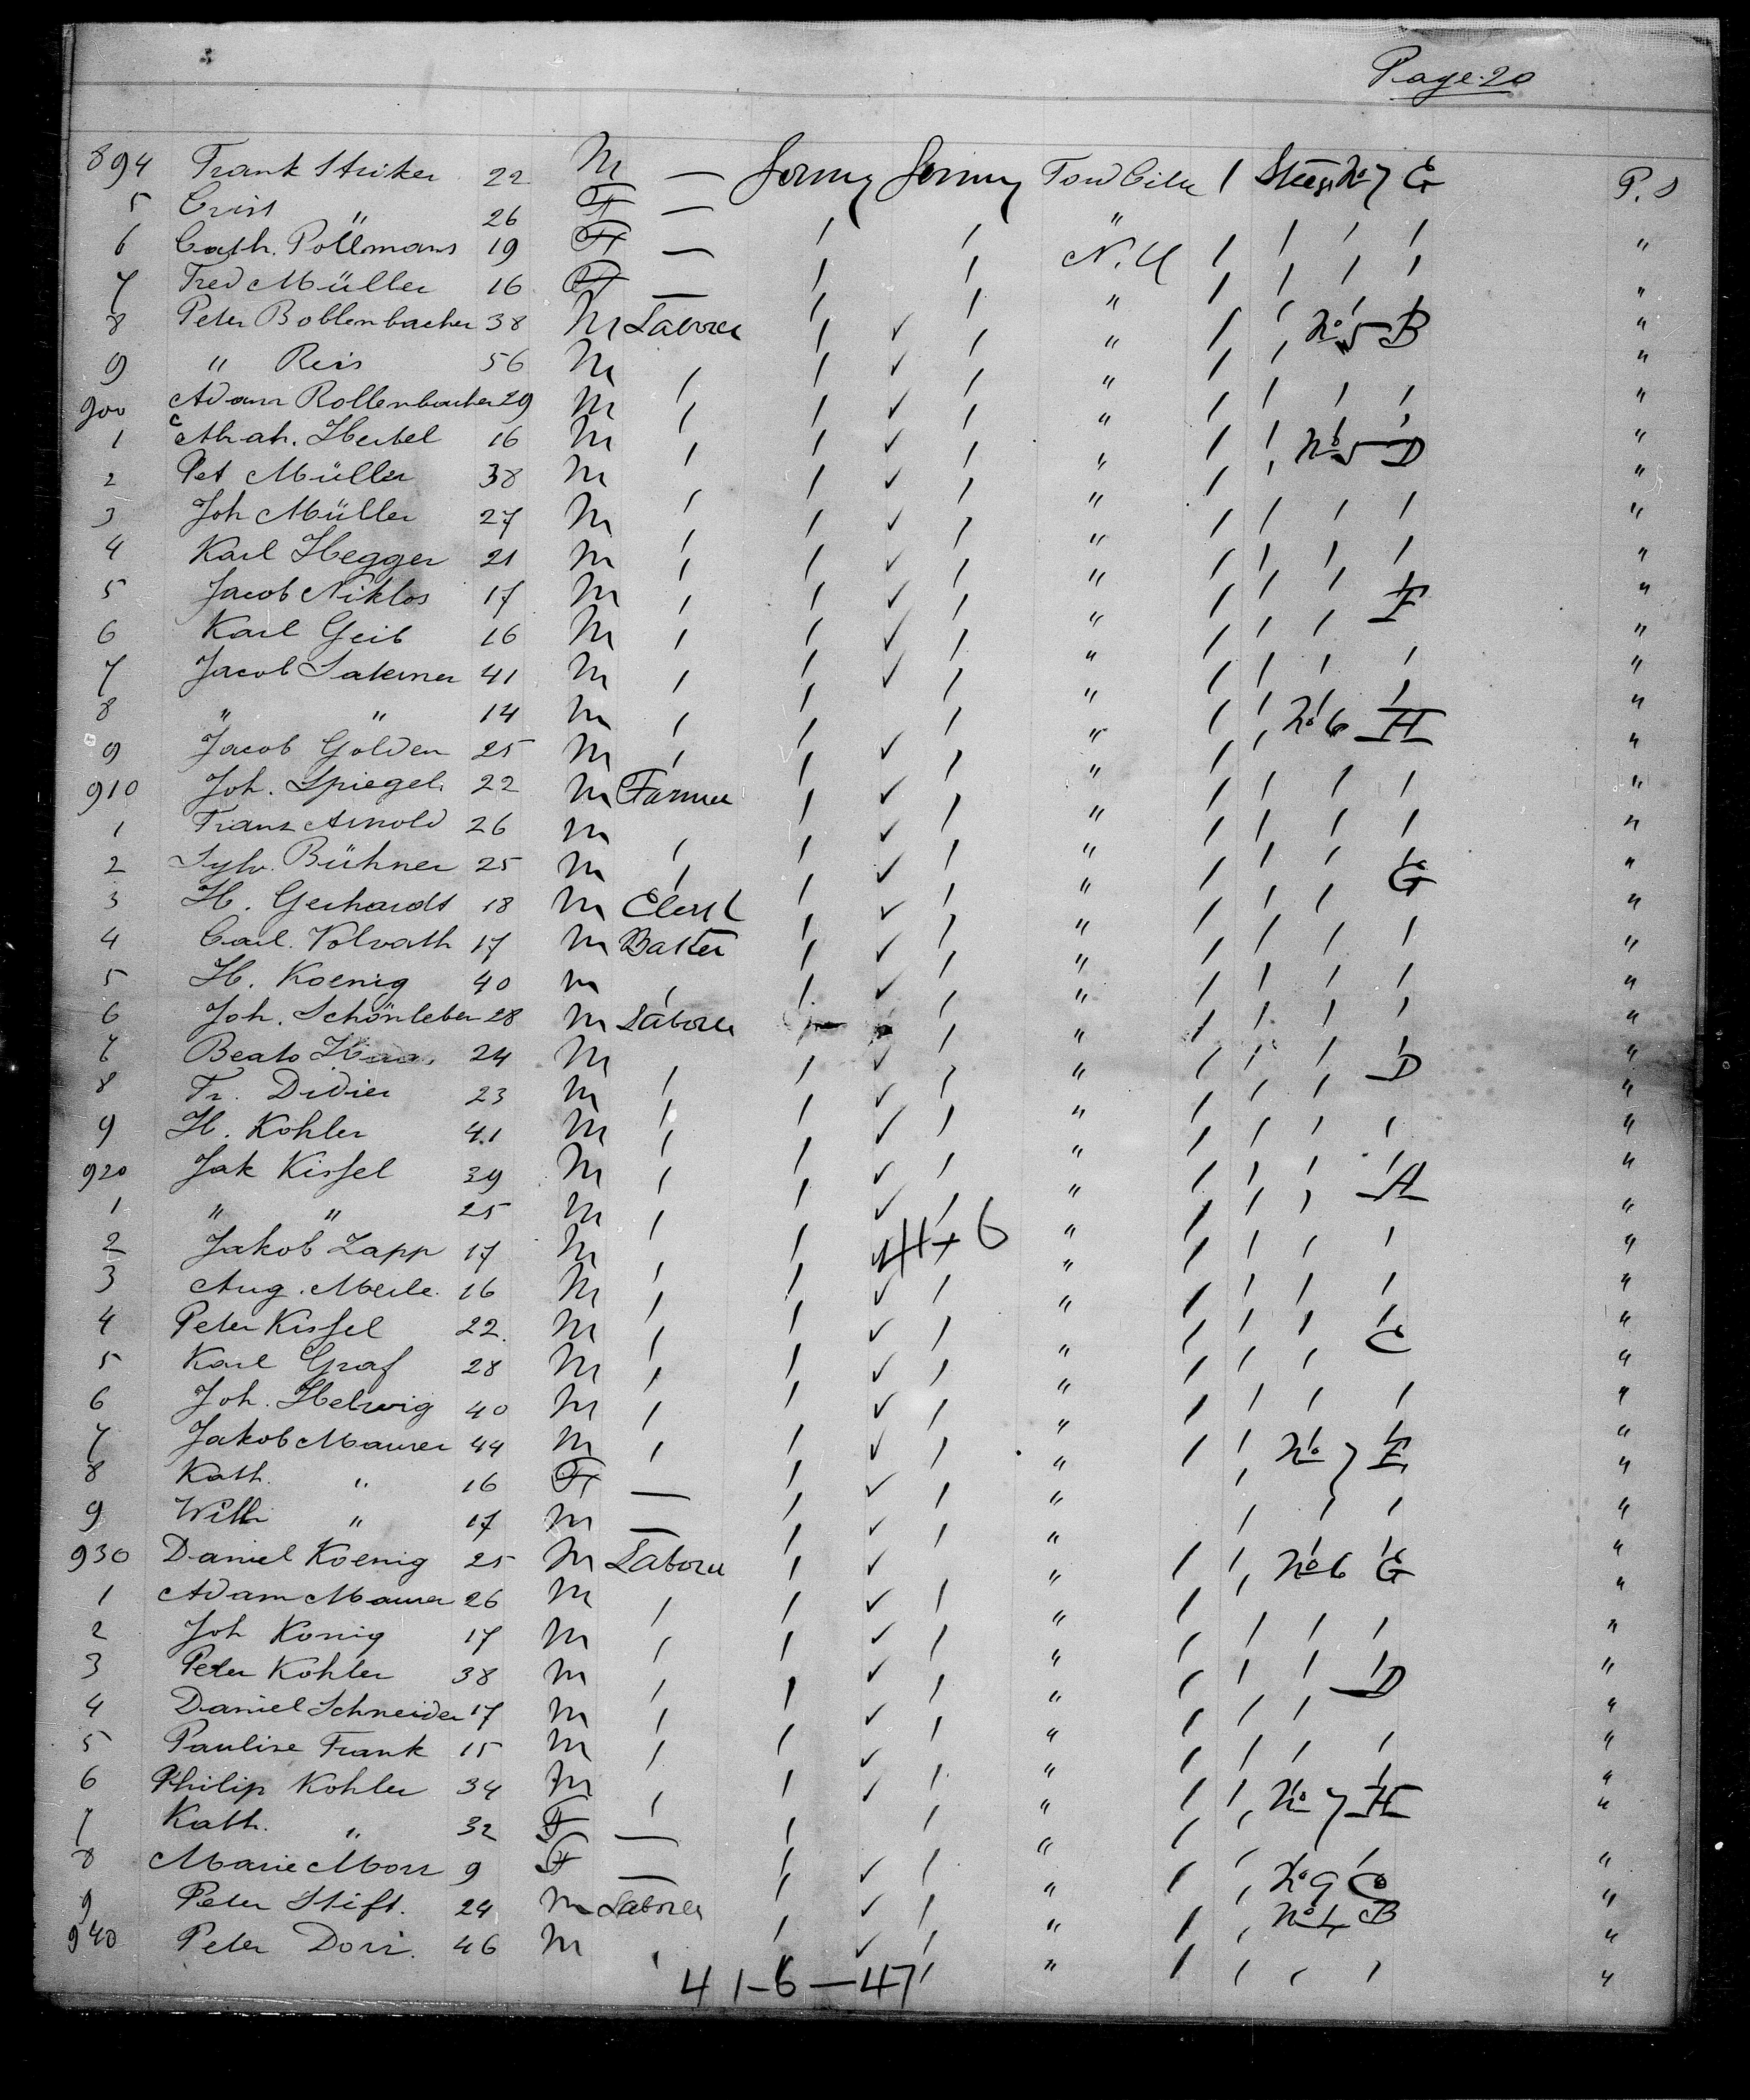 Page 20
894 Frank Striker 22 M — Germy Germy 1 Steerg No 7 G P. S
5 Crist " 26 F — / / " / / / / "
6 Cath. Pollmans 19 F — / / N. Y / / / / "
7 Fred Müller 16 F — / / " / / / / "
8 Peter Bollenbacher 38 M Laborer / ✓ / " / / No 5 B "
9 " Reis 56 M / / ✓ / " / / / / "
900 Adam Bollenbacher 29 M / / ✓ / " / / / / "
1 Abrah. Hertel 16 M / / ✓ / " / / No 5 D "
2 Pet Müller 38 M / / ✓ / " / / / / "
3 Joh Müller 27 M / / ✓ / " / / / / "
4 Karl Hegger 21 M / / ✓ / " / / / / "
5 Jacob Niklos 17 M / / ✓ / " / / / F "
6 Karl Geib 16 M / / ✓ / " / / / / "
7 Jacob 41 M / / ✓ / " / / / / "
8 " " 14 M / / / " / / No 6 H "
9 Jacob Golden 25 M / / ✓ / " / / / / "
910 Joh. Spiegel 22 M Farmer / ✓ / " / / / / "
1 Franz Arnold 26 M / / ✓ / " / / / / "
2 Sylv. Bühner 25 M / / ✓ / " / / / G "
3 H. Gerhardt 18 M Clerk / ✓ / " / / / / "
4 Carl. Volvath 17 M Baker / ✓ / " / / / / "
5 H. Koenig 40 M / / ✓ / " / / / / "
6 Joh. Schönleber 28 M Laborer / " / / / / "
7 Beato 24 M / / ✓ / " / / / D "
8 Fr. Didier 23 M / / ✓ / " / / / / "
9 H. Kohler 41 M / / ✓ / " / / / / "
920 Jak Kissel 39 M / / ✓ / " / / / A "
1 " " 25 M / / ✓ / " / / / / "
2 Jakob Zapp 17 M / / 6 " / / / / "
3 Aug. Merle 16 M / / ✓ / " / / / / "
4 Peter Kissel 22 M / / ✓ / " / / / C "
5 Karl Graf 28 M / / ✓ / " / / / / "
6 Joh. Helwig 40 M / / ✓ / " / / / / "
7 Jakob Maurer 44 M / / ✓ / " / / No 7 E "
8 Kath. " 16 F — / ✓ / " / / / "
9 Wilh " 17 M — / ✓ / " / / / "
930 Daniel Koenig 25 M Laborer / ✓ " / / No 6 G "
1 Adam Maurer 26 M / / ✓ / " / / / / "
2 Joh Konig 17 M / / ✓ / " / / / / "
3 Peter Kohler 38 M / / ✓ / " / / / D "
4 Daniel Schneider 17 M / / ✓ / " / / / "
5 Pauline Frank 15 M / / ✓ / " / / / / "
6 Philip Kohler 34 M / / ✓ / " / / No 7 H "
7 Kath. " 32 F — / / " / / / "
8 Marie Morr 9 F — / ✓ / " / / No 9 C "
9 Peter Stift. 24 M Laborer / ✓ / " / / No 4 B "
940 Peter Dorr. 46 M / / ✓ / " / / / / "
41-6-47